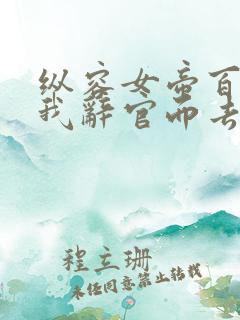 纵容女帝百
我辞官而去
程立珊
未经同意禁止转载